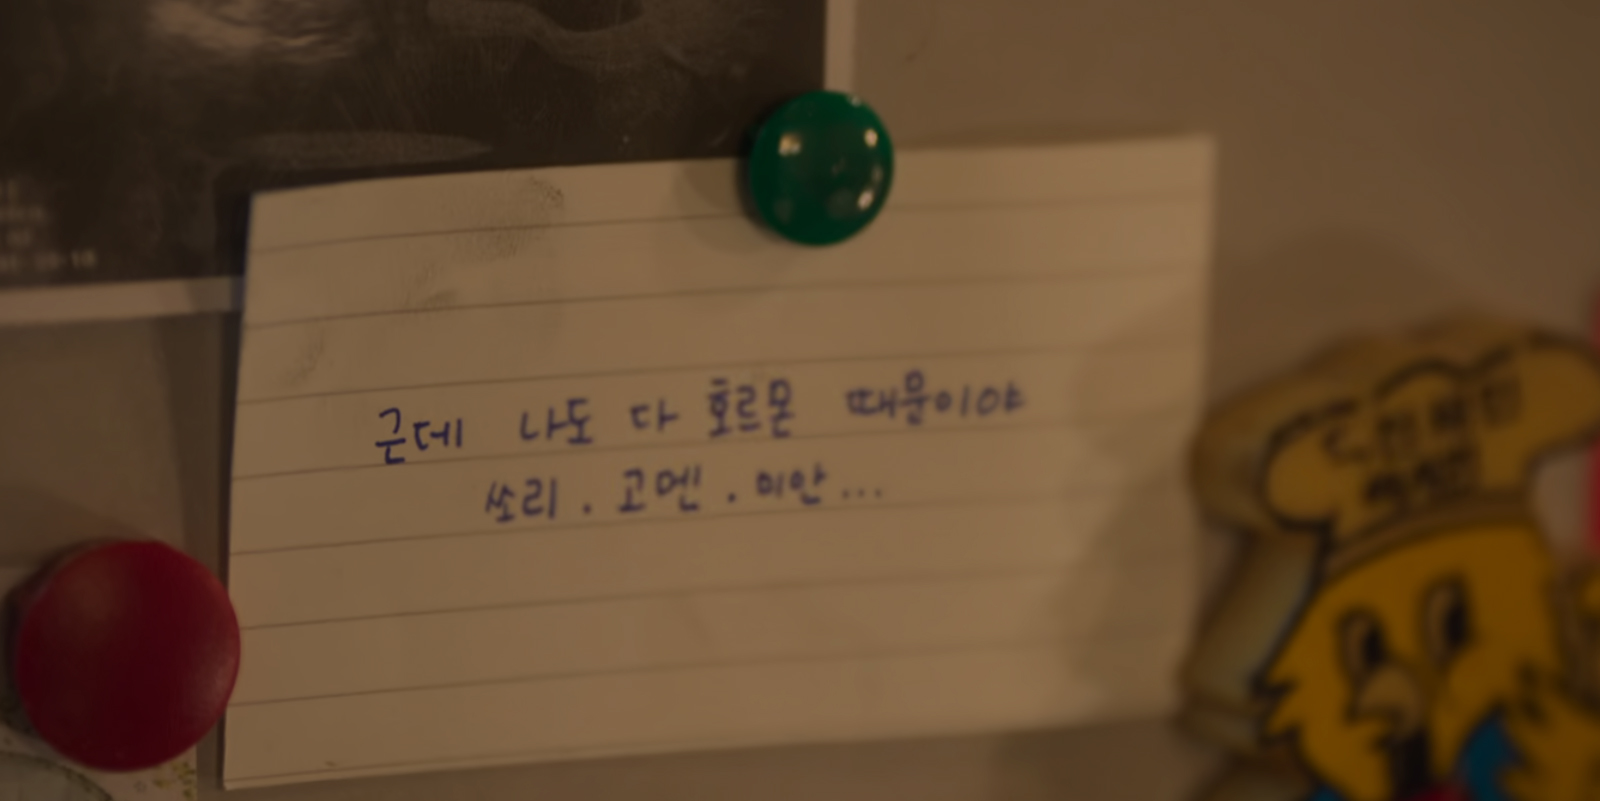 근데 나도 다 호르몬 때문이야
쏘리. 고멘. 미안...